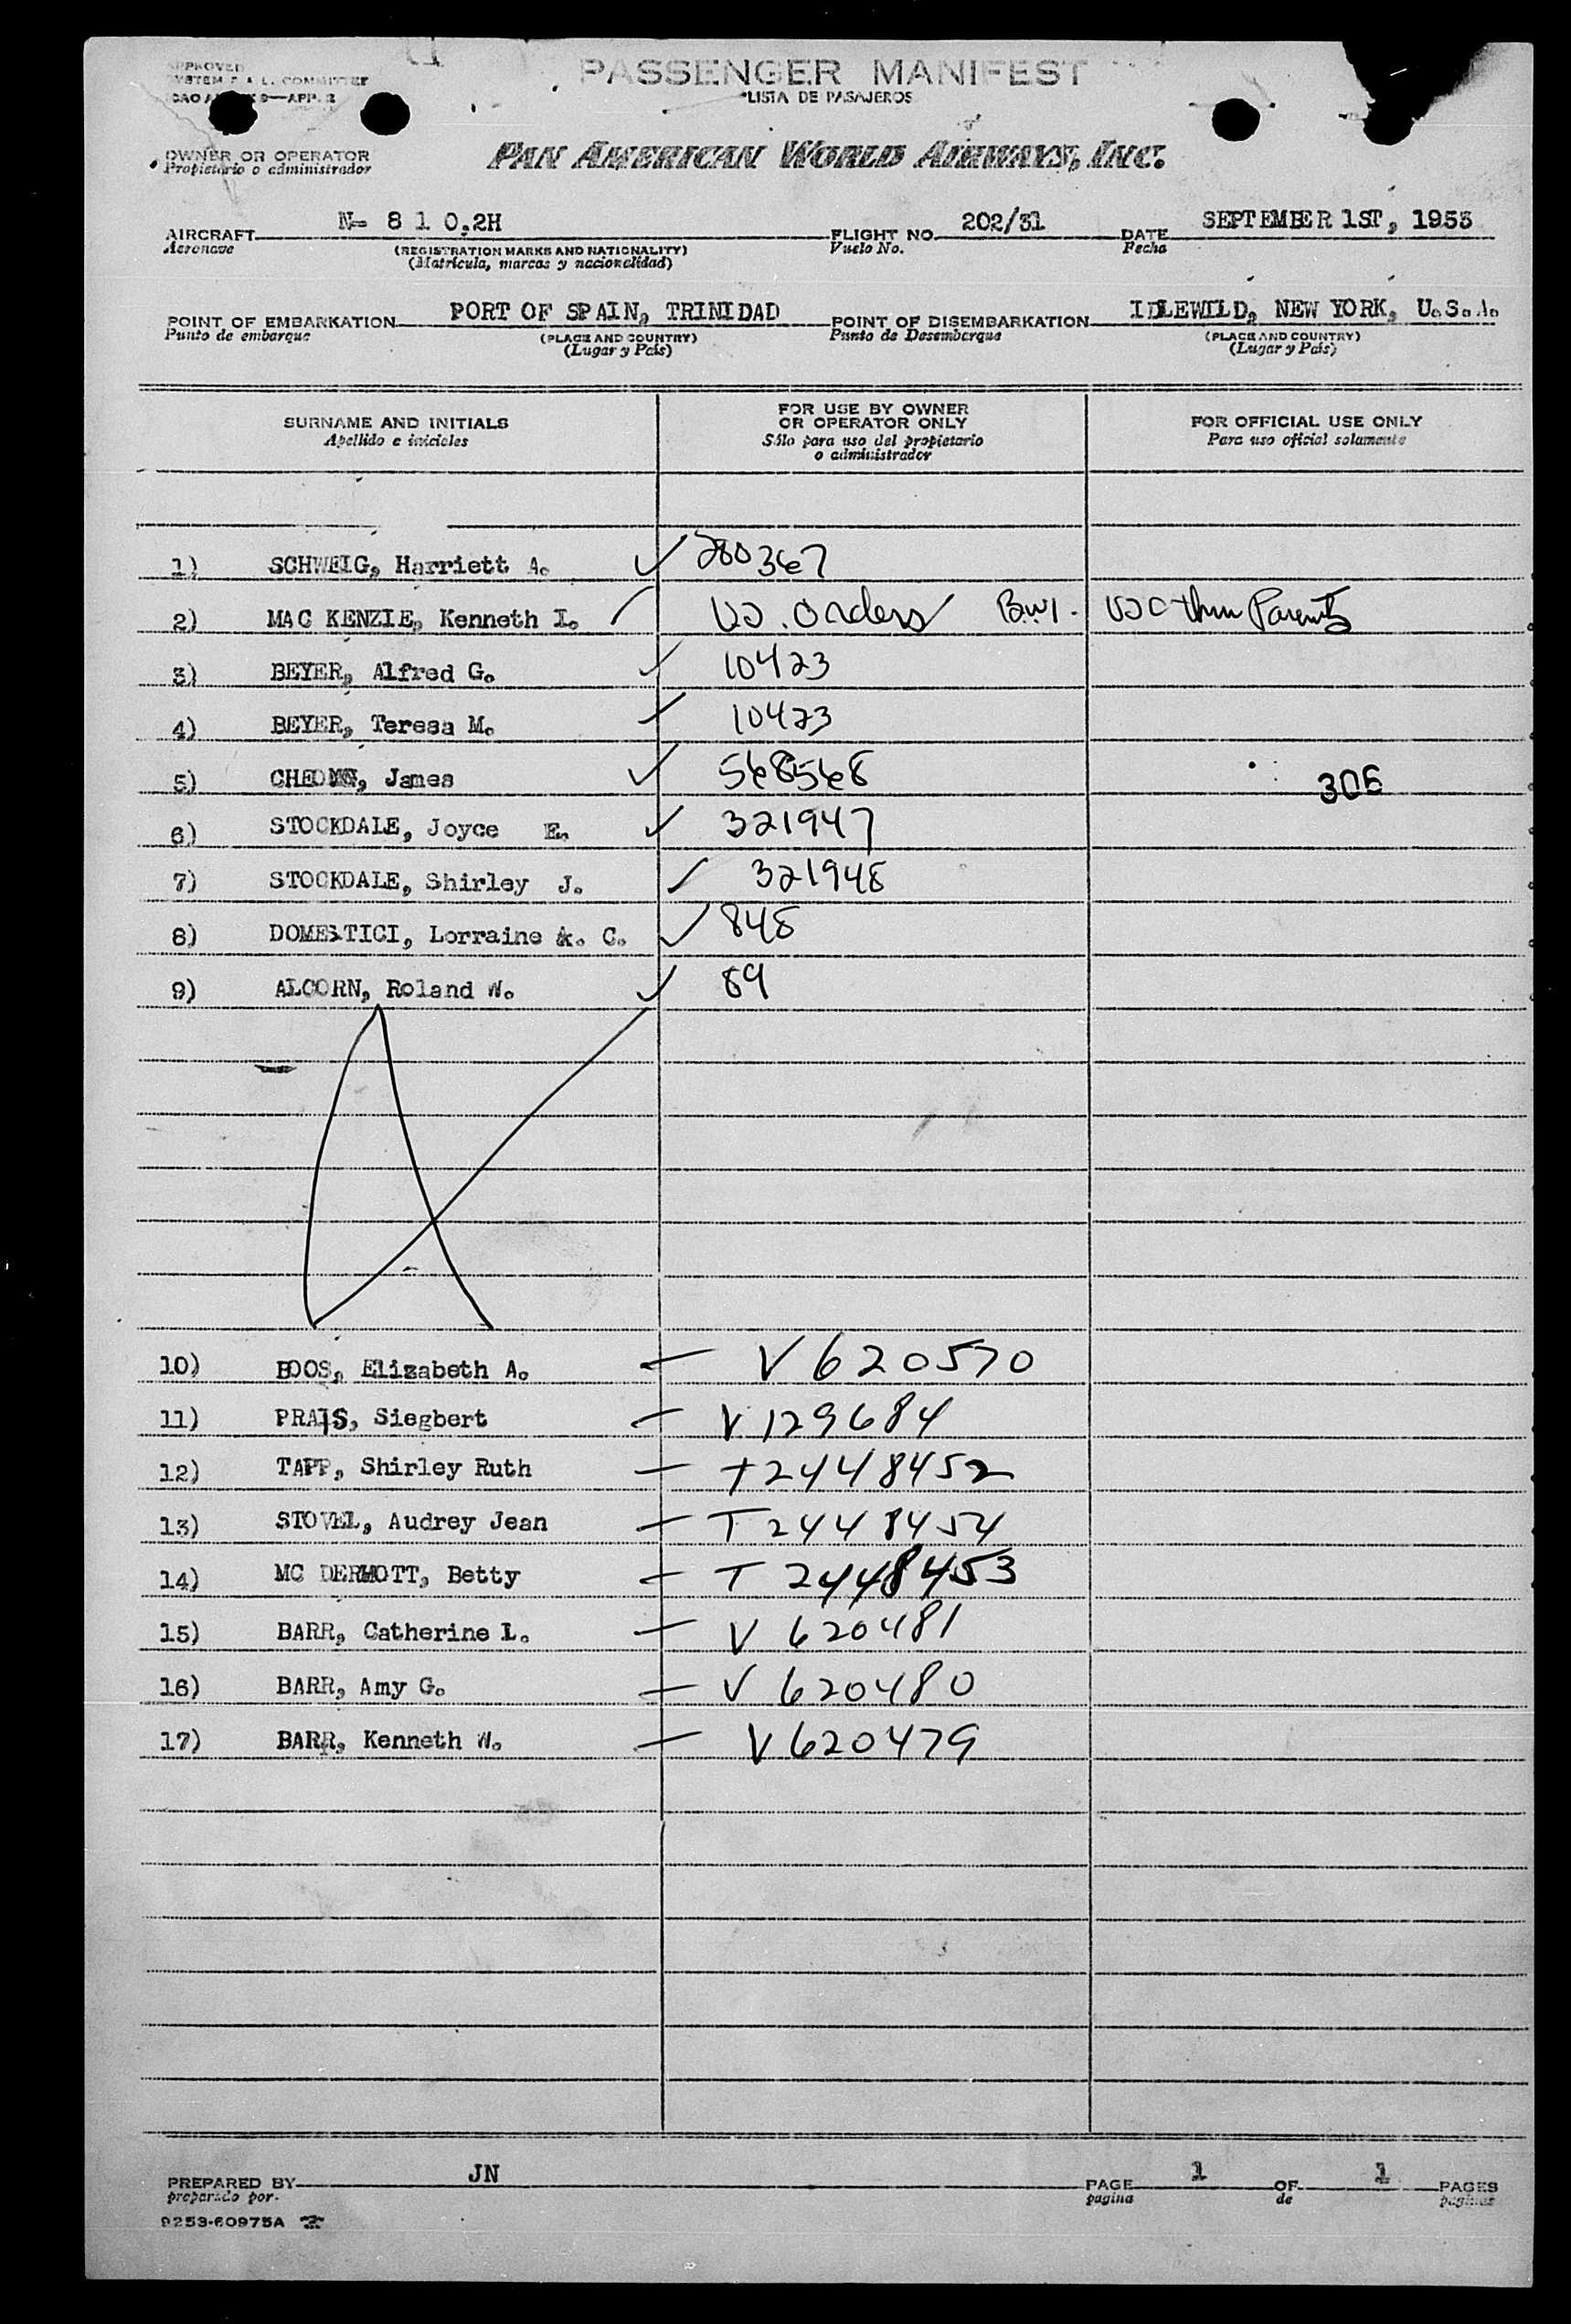 APPROVED
SYSTEM F.A.L. COMMITTEE
9—APP. 2
PASSENGER MANIFEST
LISTA DE PASAJEROS
OWNER OR OPERATOR
Propietario o administrador
PAN AMERICAN WORLD AIRWAYS, INC.
AIRCRAFT N- 8 1 0.2H
Aeronave
(REGISTRATION MARKS AND NATIONALITY)
(Matrícula, marcas y nacionalidad)
FLIGHT NO. 202/31
Vuelo No.
DATE SEPTEMBER 1ST, 1953
Fecha
POINT OF EMBARKATION PORT OF SPAIN, TRINIDAD
Punto de embarque
(PLACE AND COUNTRY)
(Lugar y País)
POINT OF DISEMBARKATION IDLEWILD, NEW YORK, U.S.A.
Punto de Desembarque
(PLACE AND COUNTRY)
(Lugar y País)
SURNAME AND INITIALS
Apellido e iniciales
FOR USE BY OWNER
OR OPERATOR ONLY
Sólo para uso del propietario
o administrador
FOR OFFICIAL USE ONLY
Para uso oficial solamente
1) SCHWEIG, Harriett A. 280367
2) MAC KENZIE, Kenneth I. US. orders B.W.I. USC thru Parents
3) BEYER, Alfred G. 10423
4) BEYER, Teresa M. 10423
5) James 568568 306
6) STOCKDALE, Joyce E. 321947
7) STOCKDALE, Shirley J. 321948
8) DOMESTICI, Lorraine A. C. 848
9) ALCORN, Roland W. 89
10) BOOS, Elizabeth A. V 620570
11) PRAIS, Siegbert V 129684
12) TAPP, Shirley Ruth T 2448452
13) STOVEL, Audrey Jean T 2448454
14) MC DERMOTT, Betty T 2448453
15) BARR, Catherine L. V 620481
16) BARR, Amy G. V 620480
17) BARR, Kenneth W. V 620479
PREPARED BY JN
preparado por
PAGE 1 OF 1 PAGES
página de páginas
9253-60975A